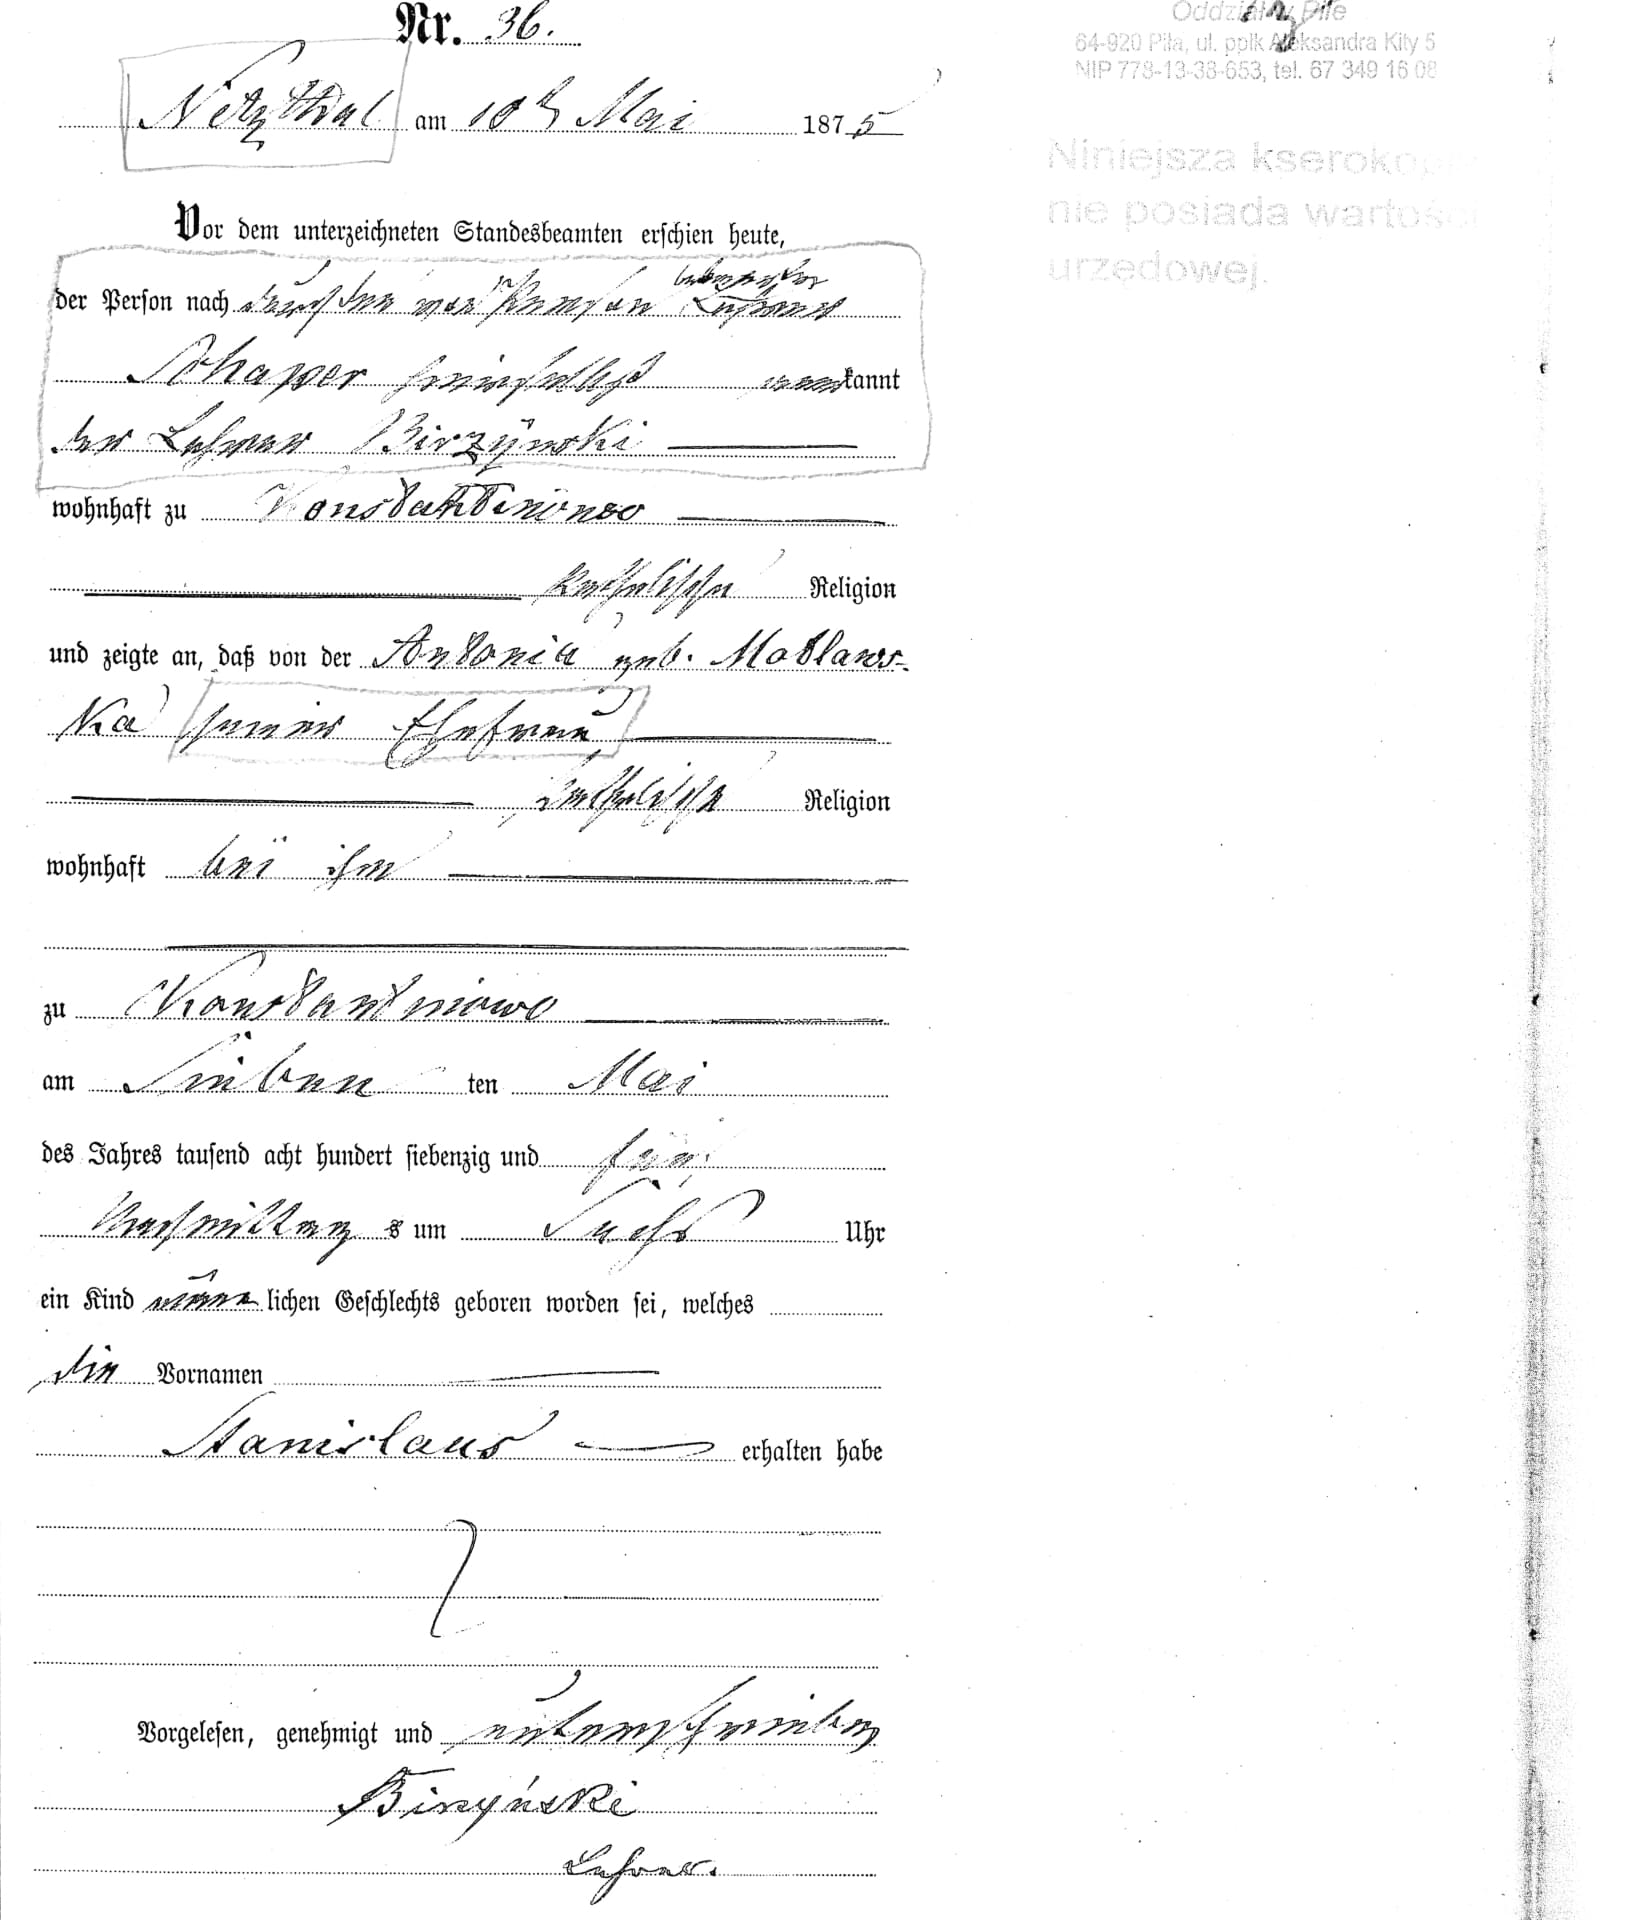 Nr. 36.
Oddział w Pile
64-920 Piła, ul. pplk Aleksandra Kity 5
NIP 778-13-38-653, tel. 67 349 16 08
Netzthal am 10t Mai 1875
Niniejsza kserokopia
nie posiada wartości
urzędowej.
Vor dem unterzeichneten Standesbeamten erschien heute,
der Person nach durch den von Person bekannten Lehrer
Schaper kannt
der Lehrer Birzynski
wohnhaft zu Konstantinowo
katholischer Religion
und zeigte an, daß von der Antonia geb. Matlaws-
ka seiner Ehefrau
katholischer Religion
wohnhaft bei ihm
zu Konstantinowo
am Sieben ten Mai
des Jahres tausend acht hundert siebenzig und fün
Nachmittag s um Sechs Uhr
ein Kind männ lichen Geschlechts geboren worden sei, welches
die Vornamen
Stanislaus erhalten habe
Vorgelesen, genehmigt und unterschrieben
Birzyński
Lehrer.